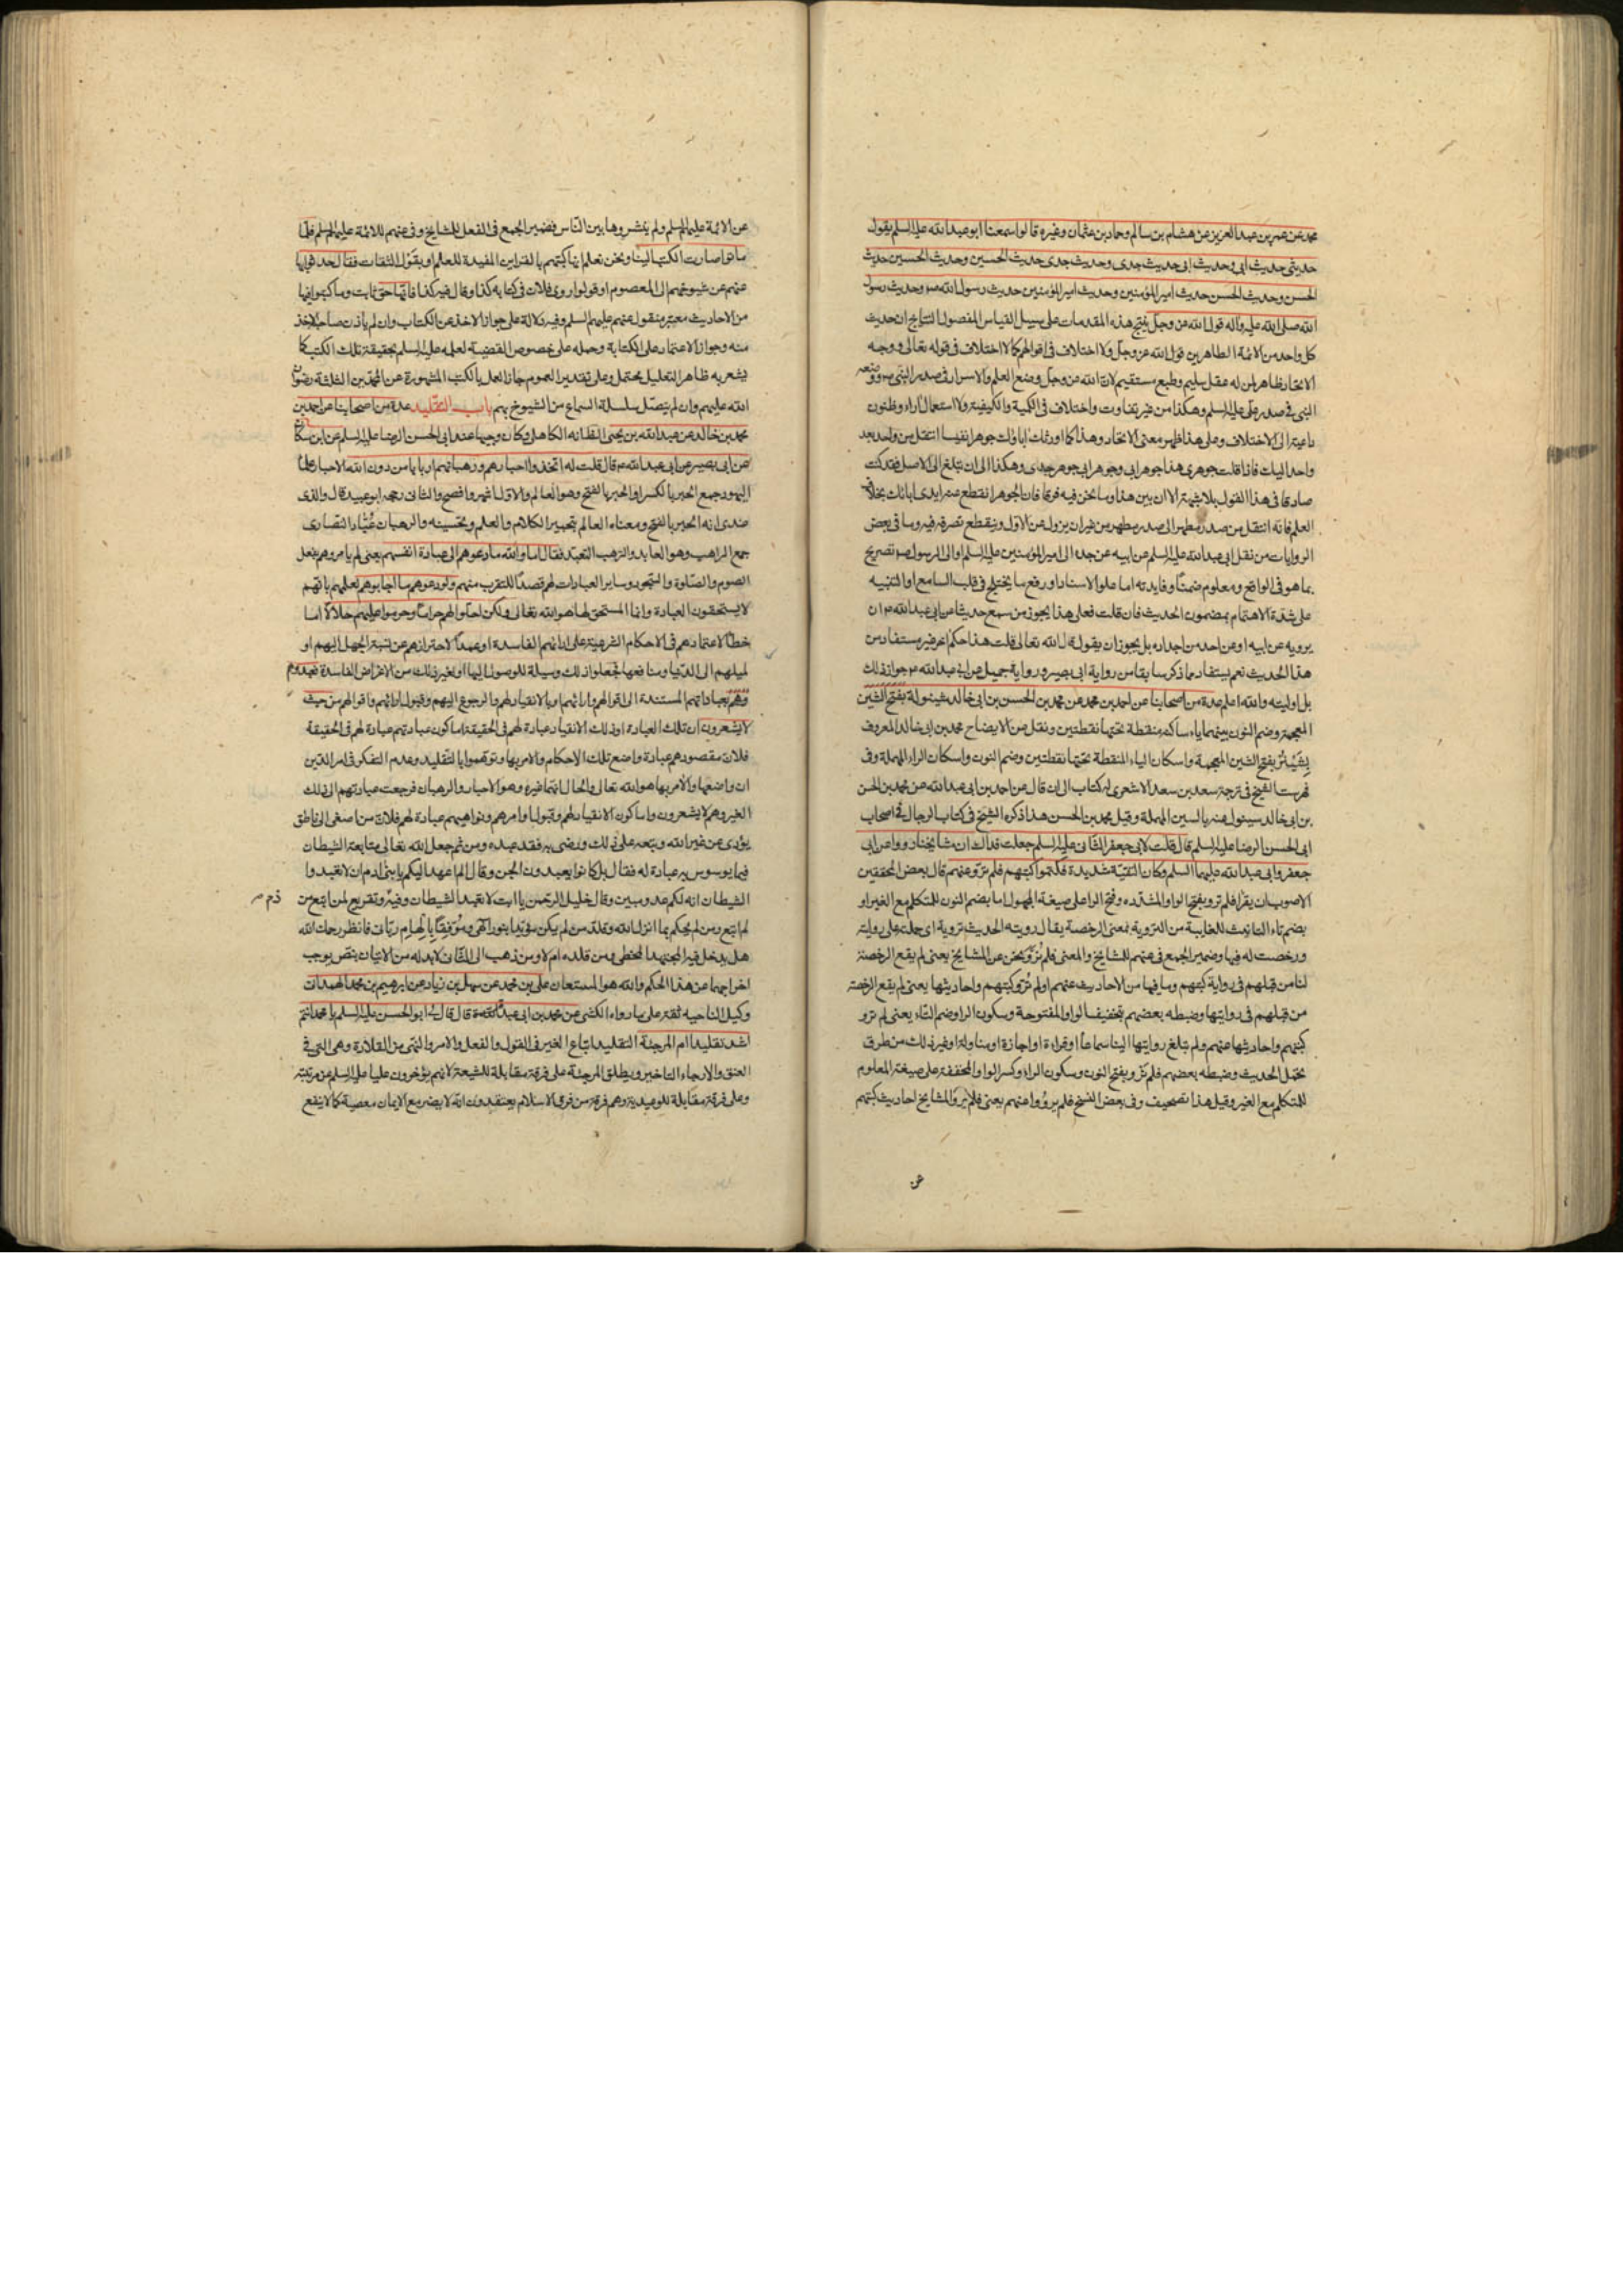 محمد عن عمر بن عبد العزيز عن هشام بن سالم وحماد بن عثمان وغيره قالوا سمعنا ابو عبد الله عليه السلم يقول
حديثى حديث ابى وحديث ابى حديث جدى وحديث جدى حديث الحسين وحديث الحسين حديث
الحسن وحديث الحسن حديث امير المؤمنين وحديث امير المؤمنين حديث رسول الله ص وحديث رسول
الله صلى الله عليه وآله قول الله عز وجل ينتج هذه المقدمات على سبيل القياس المفصول النتايج ان حديث
كل واحد من الائمة الطاهرين قول الله عز وجل ولا اختلاف فى اقوالهم كما لا اختلاف فى قوله تعالى ووجه
الاتحاد ظاهر لمن له عقل سليم وطبع مستقيم لان الله عز وجل وضع العلم والاسرار فى صدر النبى ص ووضعه
النبى فى صدر على عليه السلم وهكذا من غير تفاوت واختلاف فى الكمية والكيفية ولا استعمال اراء وظنون
داعية الى الاختلاف وعلى هذا ظهر معنى الاتحاد وهذا كما اورثك اباؤك جوهرا نفيسا انتقل من واحد بعد
واحد اليك فاذا قلت جوهرى هذا جوهر ابى وجوهر ابى جوهر جدى وهكذا الى ان تبلغ الى الاصل فقد كنت
صادقا فى هذا القول بلا شبهة الا ان بين هذا وما نحن فيه فرقا فان الجوهر انقطع عنه ايدى ابائك بخلاف
العلم فانه انتقل من صدر مطهر الى صدر مطهر من غير ان يزول عن الاول وينقطع تصرفه فيه وما فى بعض
الروايات من نقل ابى عبد الله عليه السلم عن ابيه عن جده الى امير المؤمنين عليه السلم او الى الرسول ص تصريح
بما هو فى الواقع ومعلوم ضمنا وفايدته اما علو الاسناد او رفع ما يختلج فى قلب السامع او التنبيه
على شدة الاهتمام بمضمون الحديث فان قلت فعلى هذا يجوز من سمع حديثا عن ابى عبد الله ع ان
يرويه عن ابيه او عن احد من اجداده بل يجوز ان يقول قال الله تعالى قلت هذا حكم اخر غير مستفاد من
هذا الحديث نعم يستفاد مما ذكر سابقا من رواية ابى بصير ورواية جميل عن ابى عبد الله ع جواز ذلك
بل اولويته والله اعلم عدة من اصحابنا عن احمد بن محمد عن محمد بن الحسن بن ابى خالد شينولة بفتح الشين
المعجمة وضم النون بينهما ياء ساكنة منقطة تحتها نقطتين ونقل من الايضاح محمد بن ابى خالد المعروف
بشينر بفتح الشين المعجمة واسكان الياء المنقطة تحتها نقطتين وضم النون واسكان الراء المهملة وفى
فهرست الشيخ فى ترجمة سعد بن سعد الاشعرى له كتاب الى ان قال عن احمد بن ابى عبد الله عن محمد بن الحسن
بن ابى خالد سينول عنه بالسين المهملة وقيل محمد بن الحسن هذا ذكره الشيخ فى كتاب الرجال فى اصحاب
ابى الحسن الرضا عليه السلم قال قلت لابى جعفر الثانى عليه السلم جعلت فداك ان مشايخنا رووا عن ابى
جعفر وابى عبد الله عليهما السلم وكان التقية شديدة فكتموا كتبهم فلم ترو عنهم قال بعض المحققين
الاصوب ان يقرا فلم ترو بفتح الواو المشدده وفتح الرا على صيغة المجهول اما بضم النون للمتكلم مع الغير او
بضم تاء التانيث للغايبة من التروية بمعنى الرخصة يقال رويته الحديث تروية اى حملته على روايته
ورخصت له فيها وضمير الجمع فى عنهم للمشايخ والمعنى فلم نرو نحن عن المشايخ يعنى لم يقع الرخصة
لنا من قبلهم فى رواية كتبهم وما فيها من الاحاديث عنهم او لم ترو كتبهم واحاديثها يعنى لم يقع الرخصة
من قبلهم فى روايتها وضبطه بعضهم بتخفيف الواو المفتوحة وسكون الرا وضم التاء يعنى لم ترو
كتبهم واحاديثها عنهم ولم تبلغ روايتها الينا سماعا او قراءة او اجازة او مناولة او غير ذلك من طرق
تحمل الحديث وضبطه بعضهم فلم نرو بفتح النون وسكون الراء وكسر الواو المخففة على صيغة المعلوم
للمتكلم مع الغير وقيل هذا تصحيف وفى بعض النسخ فلم يرووا عنهم يعنى فلم يرو المشايخ احاديث كتبهم
عن
عن الائمة عليهم السلم ولم ينشروها بين الناس فضمير الجمع فى الفعل للمشايخ وفى عنهم للائمة عليهم السلم فلما
ماتوا صارت الكتب الينا ونحن نعلم انها كتبهم بالقراين المفيدة للعلم او بقول الثقات فقال حدثوا بها
عنهم عن شيوخهم الى المعصوم او قولوا روى فلان فى كتابه كذا وقال فيه كذا فانها حق ثابت وما كتبوا فيها
من الاحاديث معتبر منقول عنهم عليهم السلم وفيه دلالة على جواز الاخذ عن الكتاب وان لم ياذن صاحبه للاخذ
منه وجواز الاعتماد على الكتابة وحمله على خصوص القضية لعلمه عليه السلم بحقيقة تلك الكتب كما
يشعر به ظاهر التعليل محتمل وعلى تقدير العموم جاز العمل بالكتب المشهورة عن المحمدين الثلثة رضوان
الله عليهم وان لم يتصل سلسلة السماع من الشيوخ بهم باب التقليد عدة من اصحابنا عن احمد بن
محمد بن خالد عن عبد الله بن يحيى الظانه الكاهلى وكان وجيها عند ابى الحسن الرضا عليه السلم عن ابن مسكان
عن ابى بصير عن ابى عبد الله ع قال قلت له اتخذوا احبارهم ورهبانهم اربابا من دون الله الاحبار علماء
اليهود جمع الحبر بالكسر او الحبر بالفتح وهو العالم والاول اشهر وافصح والثانى رجحه ابو عبيد قال والذى
عندى انه الحبر بالفتح ومعناه العالم بتحبير الكلام والعلم وتحسينه والرهبان عباد النصارى
جمع الراهب وهو العابد والترهب التعبد فقال اما والله ما دعوهم الى عبادة انفسهم يعنى لم يامروهم بفعل
الصوم والصلوة والتهجد وساير العبادات لهم قصدا للتقرب منهم ولو دعوهم ما اجابوهم لعلمهم بانهم
لا يستحقون العبادة وانما المستحق لها هو الله تعالى ولكن احلوا لهم حراما وحرموا عليهم حلالا اما
خطأ لاعتمادهم فى الاحكام الشرعية على ارائهم الفاسدة او عمدا لاحترازهم عن نسبة الجهل اليهم او
لميلهم الى الدنيا ومنافعها فجعلوا ذلك وسيلة للوصول اليها او لغير ذلك من الاغراض الفاسدة فعبدوهم
وهم بعباداتهم المستندة الى اقوالهم وارائهم او بالانقياد لهم والرجوع اليهم وقبول ارائهم واقوالهم من حيث
لا يشعرون ان تلك العبادة او ذلك الانقياد عبادة لهم فى الحقيقة اما كون عبادتهم عبادة لهم فى الحقيقة
فلان مقصودهم عبادة واضع تلك الاحكام والامر بها وتوهموا بالتقليد وعدم التفكر فى امر الدين
ان واضعها والآمر بها هو الله تعالى والحال انما غيره وهو الاحبار والرهبان فرجعت عبادتهم الى ذلك
الغير وهم لا يشعرون واما كون الانقياد لهم وقبول اوامرهم ونواهيهم عبادة لهم فلان من اصغى الى ناطق
يؤدى عن غير الله وتبعه على ذلك ورضى به فقد عبده ومن ثم جعل الله تعالى متابعة الشيطان
فيما يوسوس به عبادة له فقال بل كانوا يعبدون الجن وقال الم اعهد اليكم يا بنى ادم ان لا تعبدوا
الشيطان انه لكم عدو مبين وقال خليل الرحمن يا ابت لا تعبد الشيطان وفيه وتقريع لمن اتبع من
ذم
لم يتبع ومن لم يحكم بما انزل الله وقلد من لم يكن مؤيدا بنور الهى وموفقا بالهام ربانى فانظر رحمك الله
هل يدخل فيه المجتهد المخطى ومن قلده ام لا ومن ذهب الى الثانى لابد له من الاتيان بنص يوجب
اخراجهما عن هذا الحكم والله هو المستعان على بن محمد عن سهل بن زياد عن ابرهيم بن محمد الهمدانى
وكيل الناحيه ثقة على ما رواه الكشى عن محمد بن ابى عبد الله عبيدة قال قال لى ابو الحسن عليه السلم يا محمد انتم
اشد تقليدا ام المرجئة التقليد اتباع الغير فى القول والفعل والامر والنهى من القلادة وهى التى فى
العنق والارجاء التاخير ويطلق المرجئة على فرقة مقابلة للشيعة لانهم يؤخرون عليا عليه السلم عن مرتبته
وعلى فرقة مقابلة للوعيدية وهم فرقة من فرق الاسلام يعتقدون انه لا يضر مع الايمان معصية كما لا ينفع